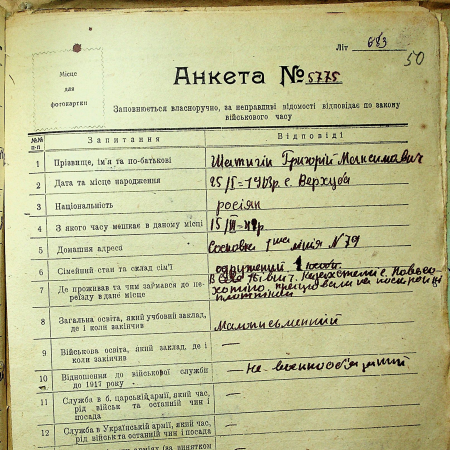 Літ 683
50
Місце
для
фотокартки
Анкета № 5775
Заповнюється власноручно, за неправдиві відомості відповідає по закону
військового часу
№№ п-п Запитання Відповіді
1 Прізвище, ім'я та по-батькові Шатигін Григорій Максимович
2 Дата та місце народження 25/I-1903р. с.
3 Національність росіян
4 З якого часу мешкає в даному місті 15/III-
5 Домашня адреса лінія N 79
6 Сімейний стан та склад сім'ї одружений 1
7 Де проживав та чим займався до пе-
реїзду в дане місце
В с.
працював на
плотніком
8 Загальна освіта, який учбовий заклад,
де і коли закінчив
Малописьменний
9 Військова освіта, який заклад, де і
коли закінчив
—
10 Відношення до військової служби
до 1917 року
— Не військовоб'
11 Служба в б. царській армії, який час,
рід військ та останній чин і
посада
—
12 Служба в Українській армії, який час,
рід військ та останній чин і посада
—